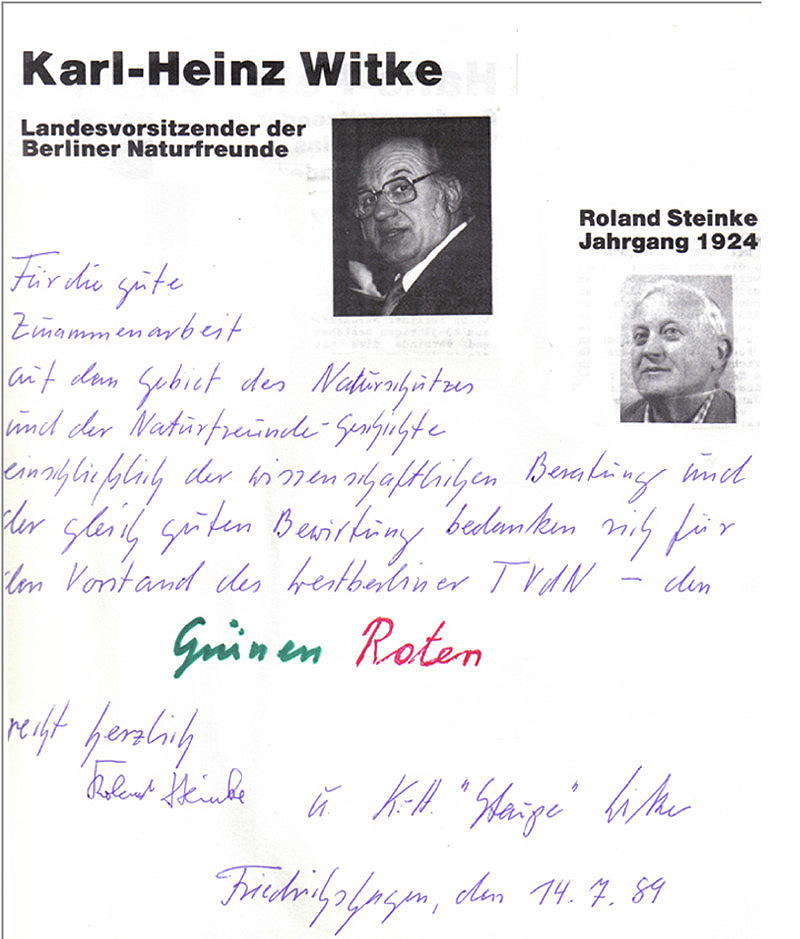 Karl-Heinz Witke
Landesvorsitzender der
Berliner Naturfreunde
Roland Steinke
Jahrgang 1924
Für die gute
Zusammenarbeit
auf dem Gebiet des Naturschutzes
und der Naturfreunde-Geschichte
einschließlich der wissenschaftlichen Beratung und
der gleich guten Bewirtung bedanken sich für
den Vorstand des Westberliner TVdN – den
Grünen Roten
recht herzlich
Roland Steinke u. K.-H. "Staupe" Witke
Friedrichshagen, den 14.7.89